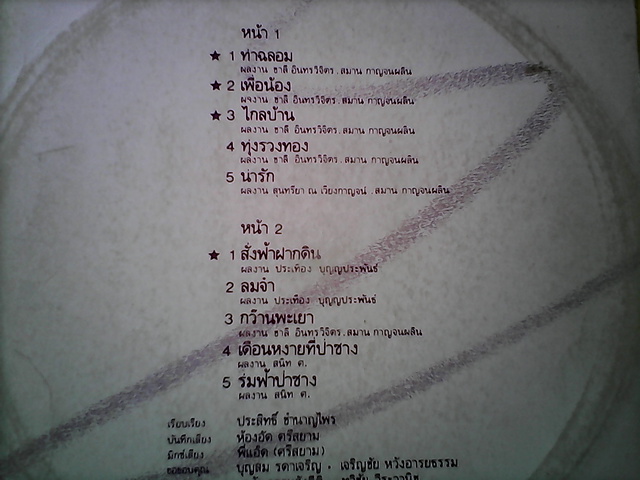 หน้า 1
★ 1 ท่าฉลอม
ผลงาน ชาลี อินทรวิจิตร . สมาน กาญจนผลิน
★ 2 เพื่อน้อง
ผลงาน ชาลี อินทรวิจิตร . สมาน กาญจนผลิน
★ 3 ไกลบ้าน
ผลงาน ชาลี อินทรวิจิตร . สมาน กาญจนผลิน
4 ทุ่งรวงทอง
ผลงาน ชาลี อินทรวิจิตร . สมาน กาญจนผลิน
5 น่ารัก
ผลงาน สุนทรียา ณ เวียงกาญจน์ . สมาน กาญจนผลิน
หน้า 2
★ 1 สั่งฟ้าฝากดิน
ผลงาน ประเทือง บุญญประพันธ์
2 ลมจ๋า
ผลงาน ประเทือง บุญญประพันธ์
3 กว๊านพะเยา
ผลงาน ชาลี อินทรวิจิตร . สมาน กาญจนผลิน
4 เดือนหงายที่ป่าซาง
ผลงาน สนิท ศ.
5 ร่มฟ้าป่าซาง
ผลงาน สนิท ศ.
เรียบเรียง ประสิทธิ์ ชำนาญไพร
บันทึกเสียง ห้องอัด ศรีสยาม
มิกซ์เสียง พี่แอ๊ด (ศรีสยาม)
ขอขอบคุณ บุญสม รดาเจริญ . เจริญชัย หวังอารยธรรม